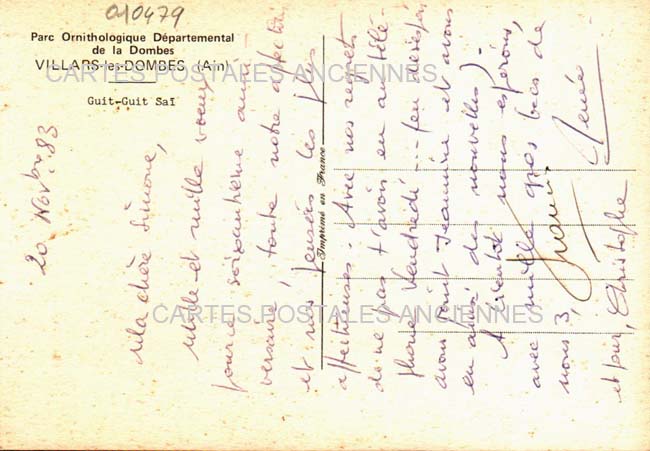 010479
Parc Ornithologique Départemental
de la Dombes
VILLARS-les-DOMBES (Ain)
Guit-Guit Saï
CARTES POSTALES ANCIENNES
CARTES POSTALES ANCIENNES
Imprimé en France
20 Novbre 83
Ma chère Simone,
Mille et mille voeux
pour ce soixantième anni-
versaire, toute notre affection
et nos pensées les plus
affectueuses. Avec nos regrets
de ne pas t'avoir eu au télé-
phone Vendredi
avons joint Jeannine et avons
eu ainsi des nouvelles).
A bientôt nous espérons,
avec mille gros bes de
nous 3,
Renée
et pur, Christophe